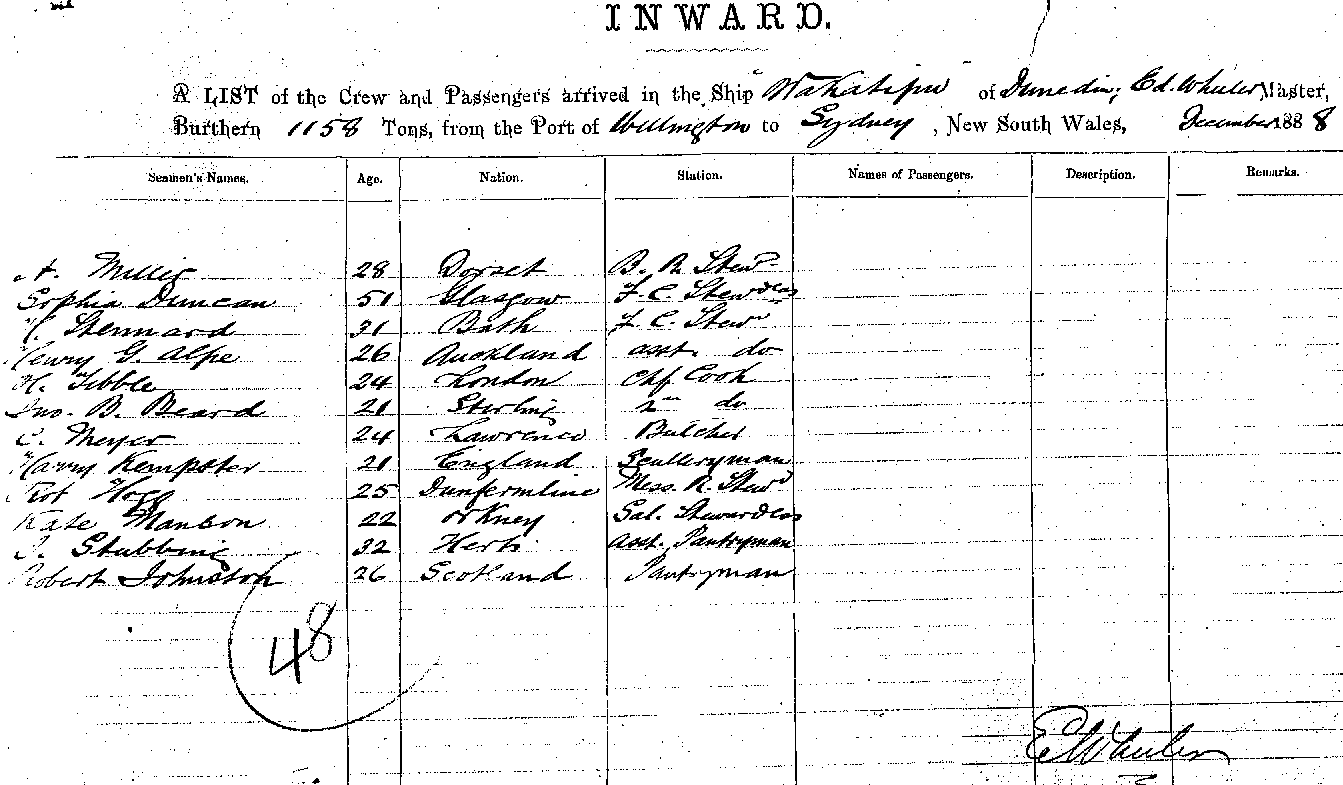 INWARD.
A LIST of the Crew and Passengers arrived in the Ship "Wakatipu" of Dunedin, Ed. Wheeler Master,
Burthern 1158 Tons, from the Port of Wellington to Sydney, New South Wales, December 1888
Seamen's Names. Age. Nation. Station. Names of Passengers. Description. Remarks.
A. Miller 28 Dorset B. R. Stewd
Sophia Duncan 51 Glasgow F. C. Stewdess
H. Stennard 31 Bath F. C. Stewd
Henry G. Alpe 26 Auckland asst. do
H. Tibble 24 London Chf Cook
Jno. B. Beard 21 Sterling 2nd do
C. Meyer 24 Lawrence Butcher
Harry Kempster 21 England Sculleryman
Rob Hogg 25 Dunfermline Mess. R. Stewd
Kate Manson 22 Orkney Sal. Stewardess
J. Stubbing 32 Herts Asst. Pantryman
Robert Johnston 26 Scotland Pantryman
48
E Wheeler